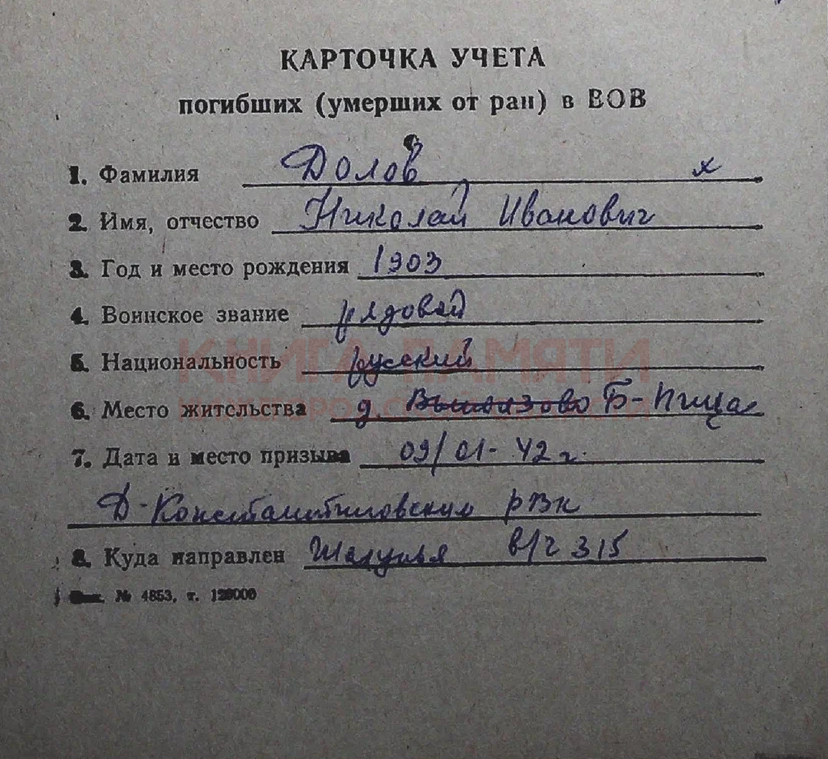 КАРТОЧКА УЧЕТА
погибших (умерших от ран) в ВОВ
1. Фамилия Долов х
2. Имя, отчество Николай Иванович
3. Год и место рождения 1903
4. Воинское звание рядовой
5. Национальность русский
КНИГА ПАМЯТИ
6. Место жительства д. Б-Пица
7. Дата и место призыва 09/01-42 г.
Д-Константиновским рвк
8. Куда направлен Шалунья в/ч 315
№ 4853, т. 120000